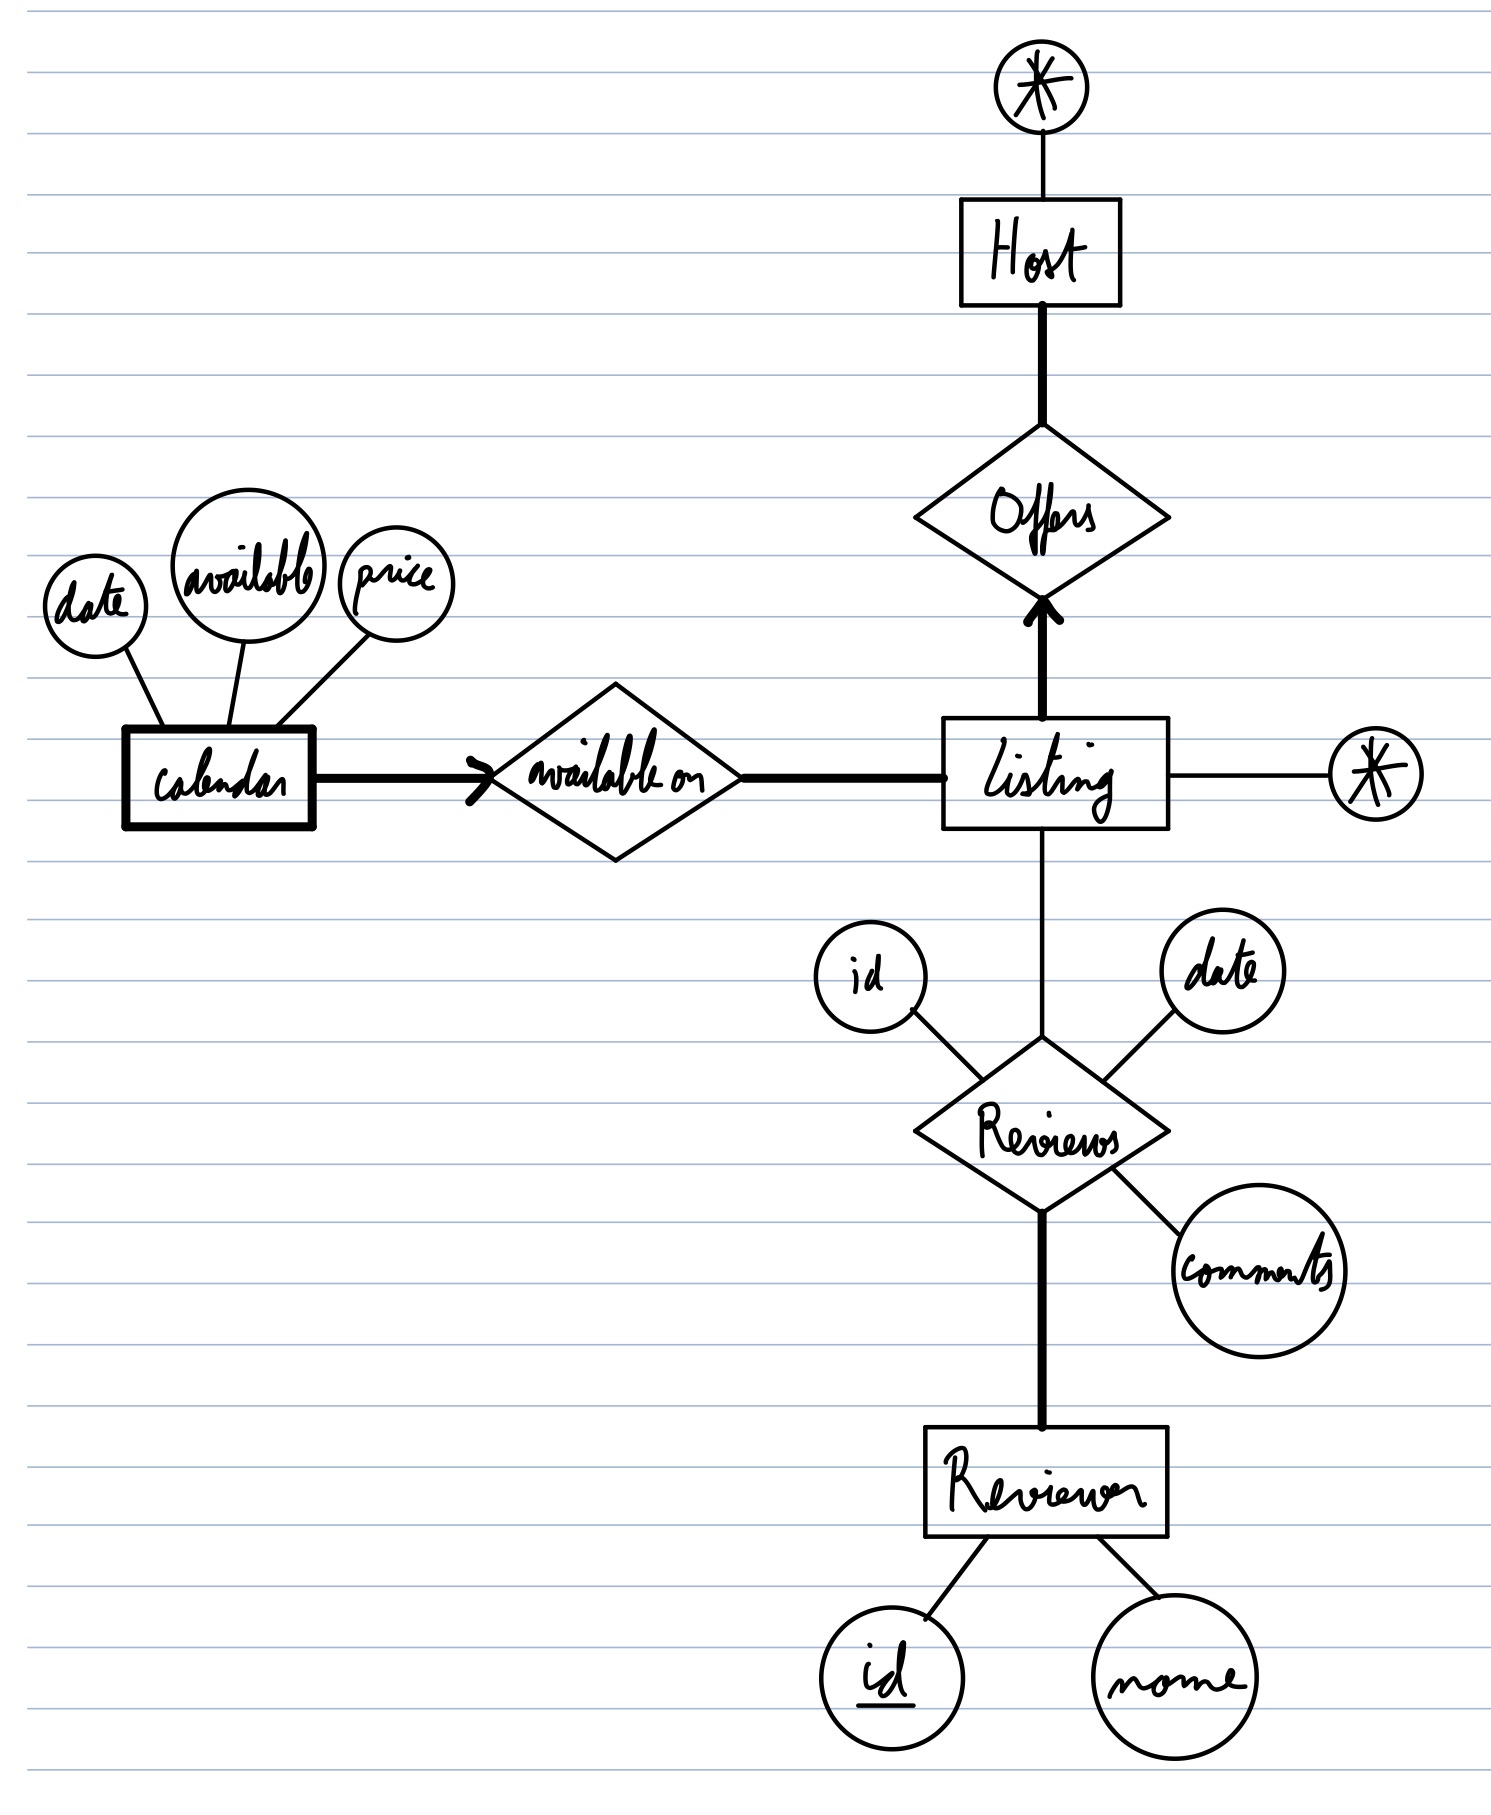 *
Host
Offers
date
available
price
calendar
available on
Listing
*
id
date
Reviews
comments
Reviewer
id
name